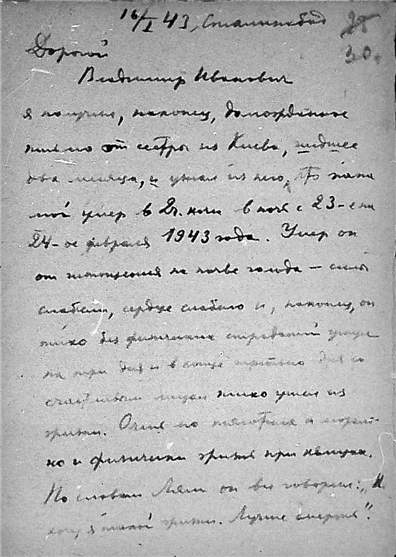 16/I 43, Сталинабад
30.
Дорогой
Владимир Иванович
я получил, наконец, долгожданное
письмо от сестры из Киева, шедшее
два месяца, и узнал из него, что папа
мой умер в 2 ч. ночи в ночь с 23-его на
24-ое февраля 1943 года. Умер он
от истощения на почве голода — силы
слабели, сердце слабело и, наконец, он
тихо без физических страданий
на три дня и в конце третьего дня со
счастливым лицом тихо ушел из
жизни. Очень его тяготила и мораль-
но и физически жизнь при немцах.
По словам Ляли он все говорил: „Не
хочу я такой жизни. Лучше смерть“.